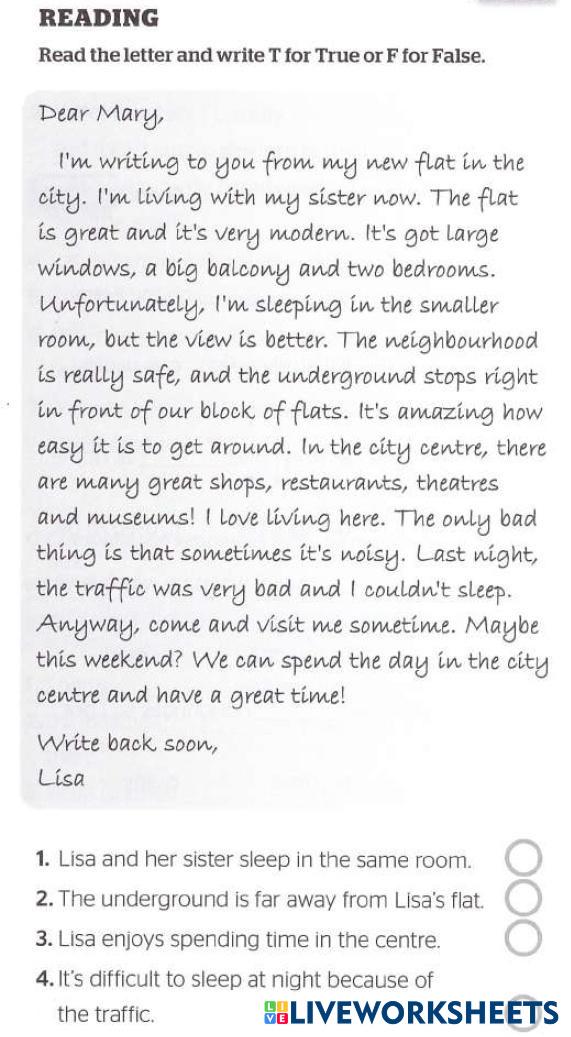 READING
Read the letter and write T for True or F for False.
Dear Mary,
I'm writing to you from my new flat in the
city. I'm living with my sister now. The flat
is great and it's very modern. It's got large
windows, a big balcony and two bedrooms.
Unfortunately, I'm sleeping in the smaller
room, but the view is better. The neighbourhood
is really safe, and the underground stops right
in front of our block of flats. It's amazing how
easy it is to get around. In the city centre, there
are many great shops, restaurants, theatres
and museums! I love living here. The only bad
thing is that sometimes it's noisy. Last night,
the traffic was very bad and I couldn't sleep.
Anyway, come and visit me sometime. Maybe
this weekend? We can spend the day in the city
centre and have a great time!
Write back soon,
Lisa
1. Lisa and her sister sleep in the same room.
2. The underground is far away from Lisa's flat.
3. Lisa enjoys spending time in the centre.
4. It's difficult to sleep at night because of
the traffic.
LIVE LIVEWORKSHEETS